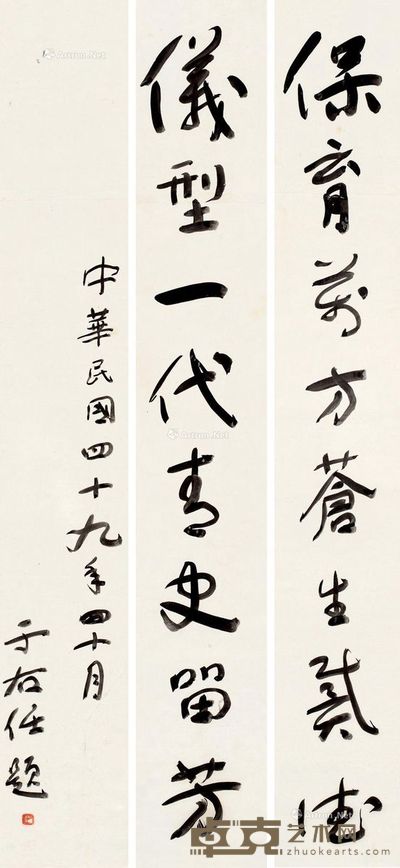 保育萬方蒼生戴德
儀型一代青史留芳
中華民國四十九年四十月
于右任題
Artron.Net
Artron.Net
卓克艺术网
zhuokearts.com